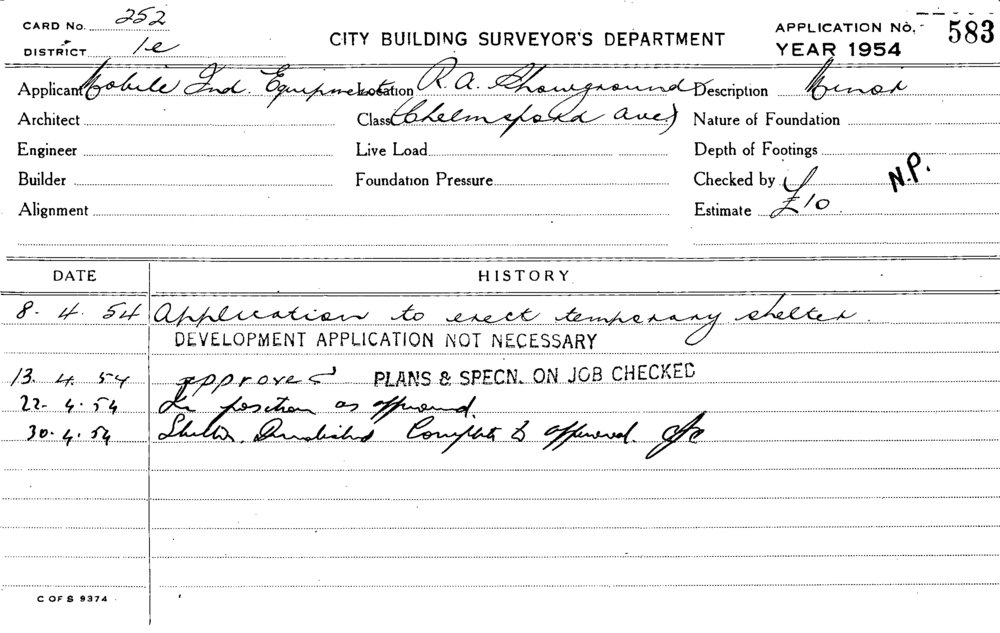 CARD No. 252
DISTRICT 1e
CITY BUILDING SURVEYOR'S DEPARTMENT
APPLICATION No. 583
YEAR 1954
Applicant Mobile Ind. Equipment Location R.A. Showground Description Minor
Architect Class (Chelmsford Ave) Nature of Foundation
Engineer Live Load Depth of Footings
Builder Foundation Pressure Checked by N.P.
Alignment Estimate £10
DATE HISTORY
8. 4. 54 Application to erect temporary shelter.
DEVELOPMENT APPLICATION NOT NECESSARY
13. 4. 54 approved PLANS & SPECN. ON JOB CHECKED
22. 4. 54 In position as approved.
30. 4. 54 Shelter Demolished Complete to approved.
C OF S 9374